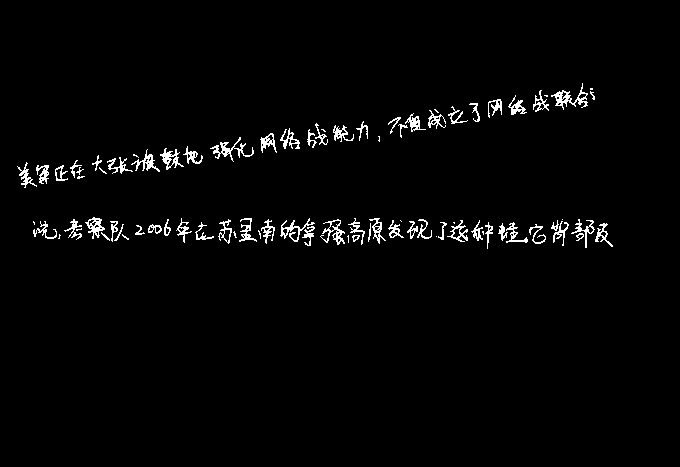 美军正在大张旗鼓地强化网络战能力,不但成立了网络战联合
说,考察队2006年在苏里南的拿骚高原发现了这种蛙。它背部及